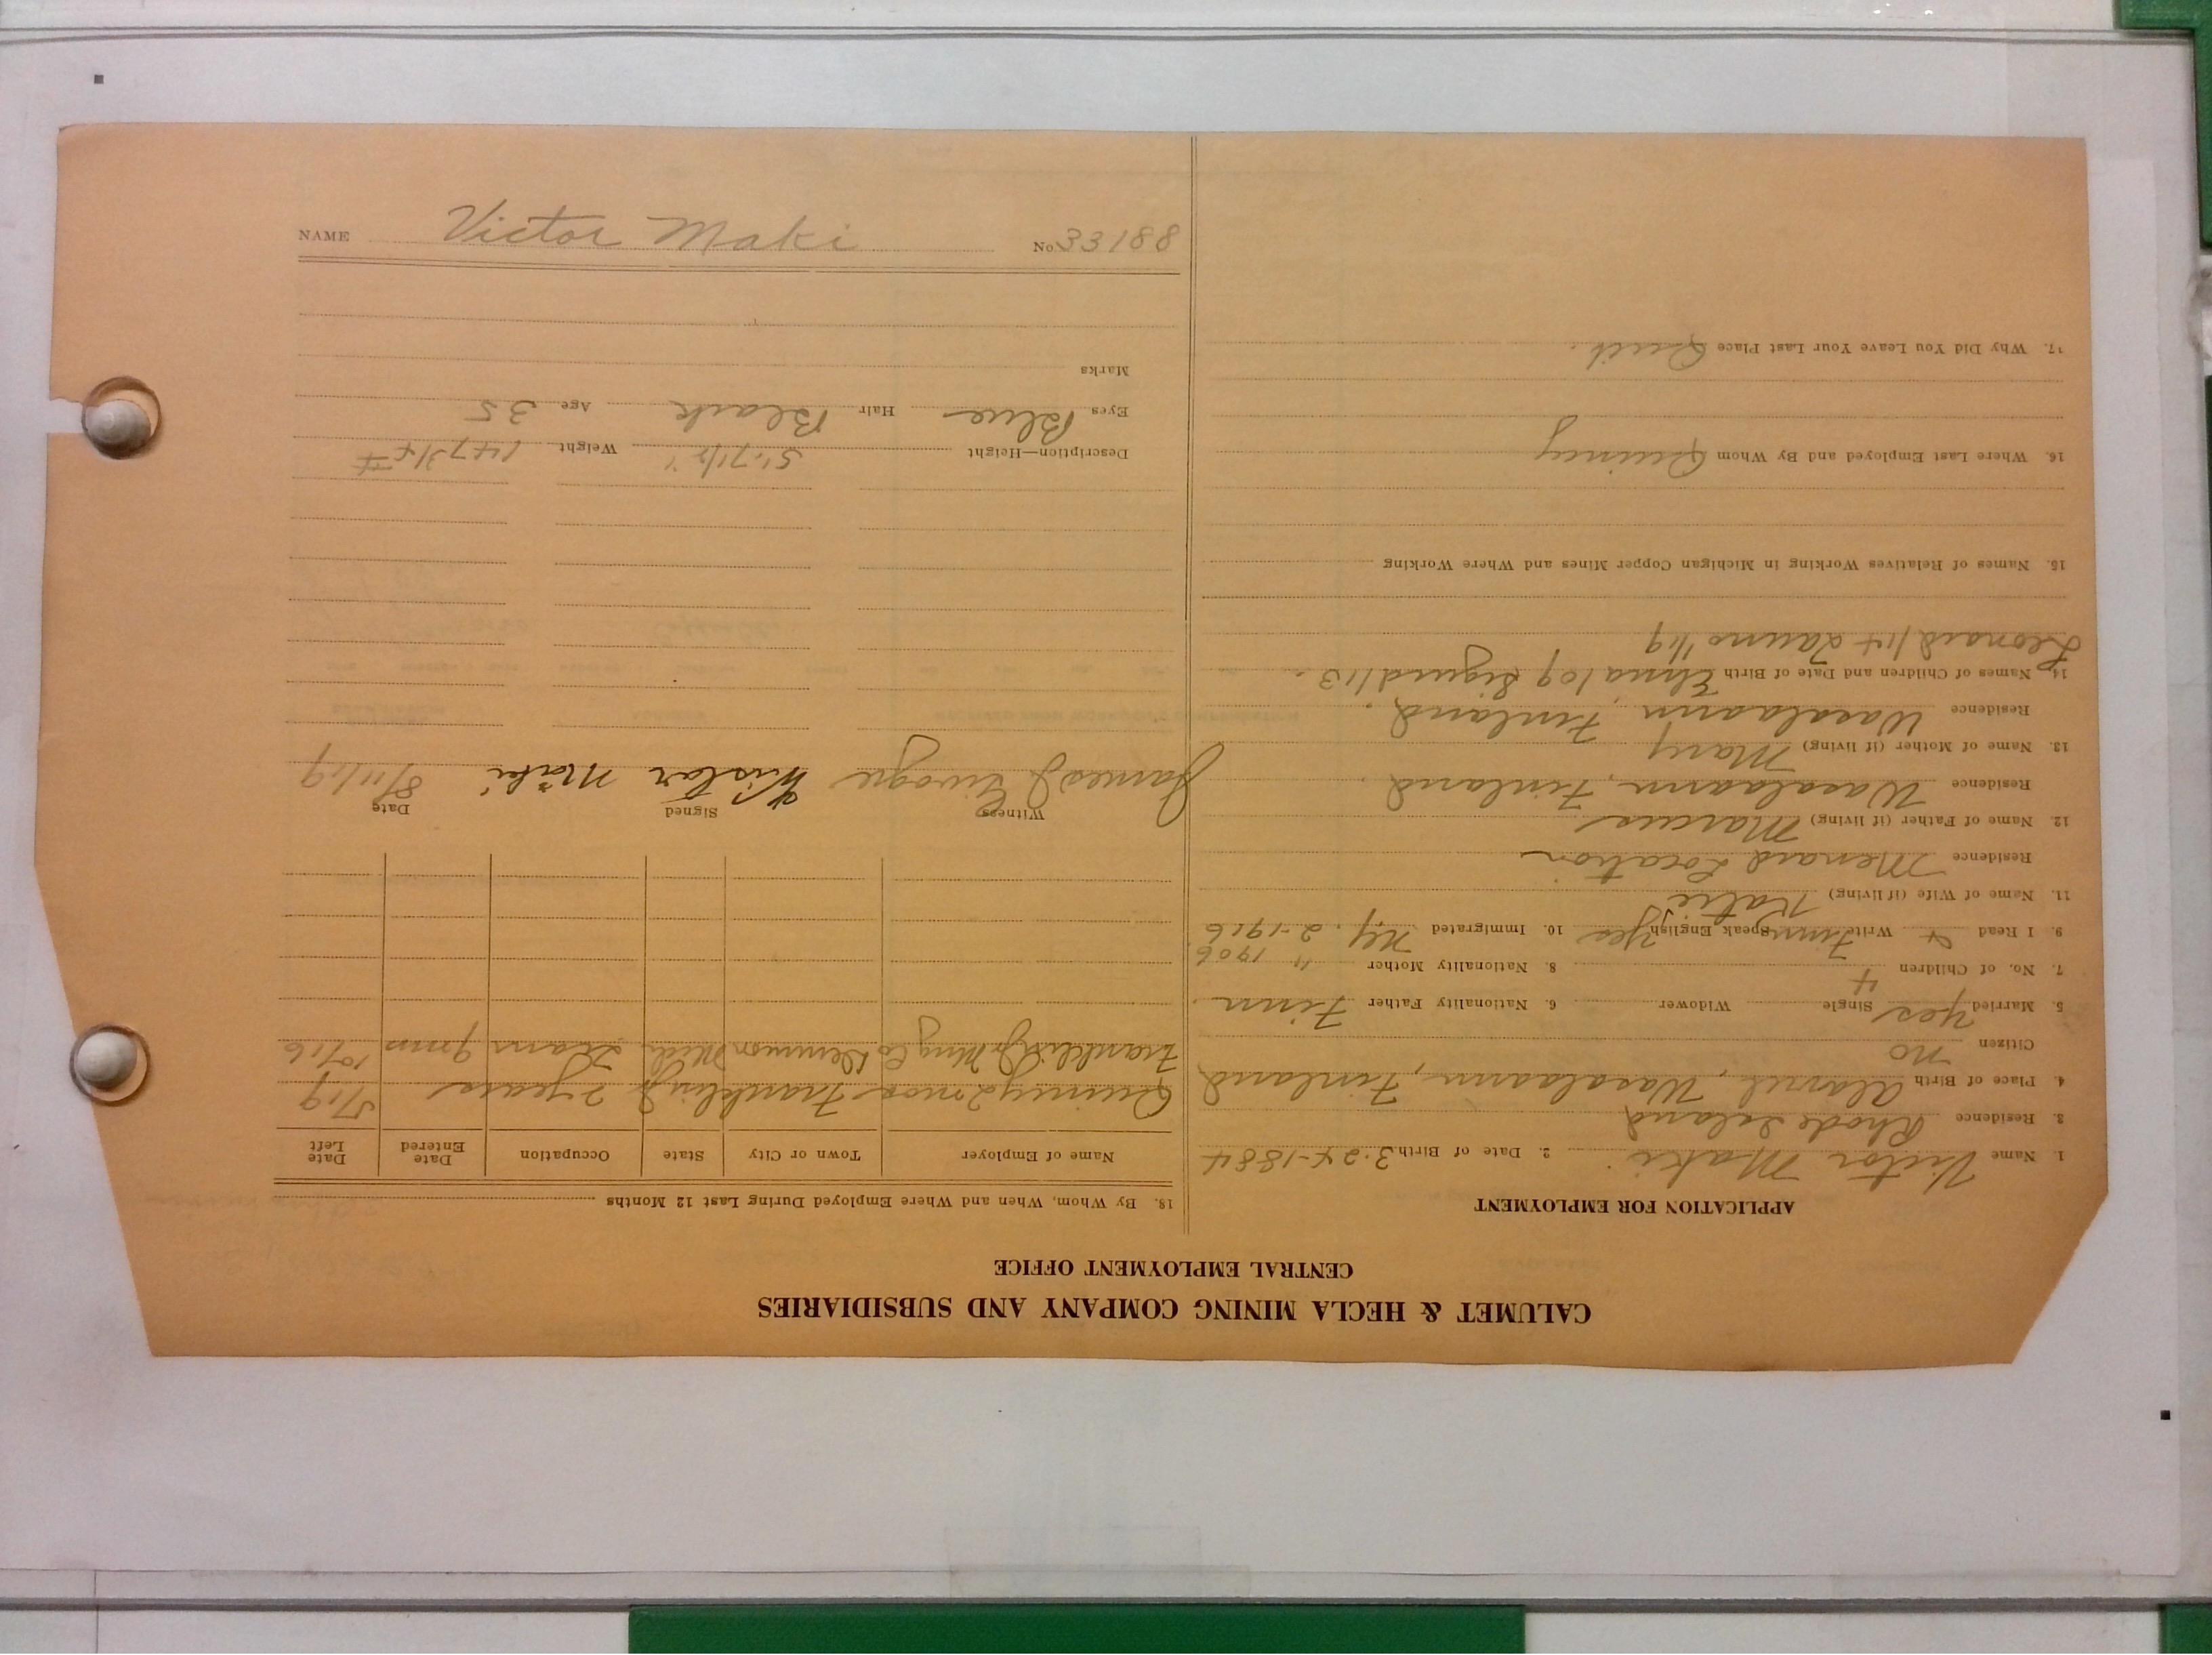 NAME Victor Maki No. 33188
CALUMET & HECLA MINING COMPANY AND SUBSIDIARIES
CENTRAL EMPLOYMENT OFFICE
APPLICATION FOR EMPLOYMENT
1. Name Victor Maki 2. Date of Birth 3-24-1884
3. Residence Rhode Island
4. Place of Birth Wasalaann, Finland
Citizen no
5. Married yes Single Widower 6. Nationality Father Finn
7. No. of Children 4 8. Nationality Mother " 1906
9. I Read & Write Finn Speak English yes 10. Immigrated Ny. 2-1916
11. Name of Wife (if living) Katie
Residence Menard Location
12. Name of Father (if living) Marcus
Residence Wasalaann, Finland.
13. Name of Mother (if living) Mary
Residence Wasalaann, Finland.
14. Names of Children and Date of Birth Elma 109 Sigurd 113.
Leonard 114 Launo 1/19
15. Names of Relatives Working in Michigan Copper Mines and Where Working
16. Where Last Employed and By Whom Quincy
17. Why Did You Leave Your Last Place Quit.
18. By Whom, When and Where Employed During Last 12 Months
Name of Employer Town or City State Occupation Date Entered Date Left
Quincy 2 mos Franklin Jr 2 years 5/19
Franklin Jr Mng Co Demmon Mich 9 mos 10/16
Witness Signed Date
James J Wiistor Mäki 8/11/19
Description—Height 5'.7 1/2" Weight 147 3/4 #
Eyes Blue Hair Black Age 35
Marks